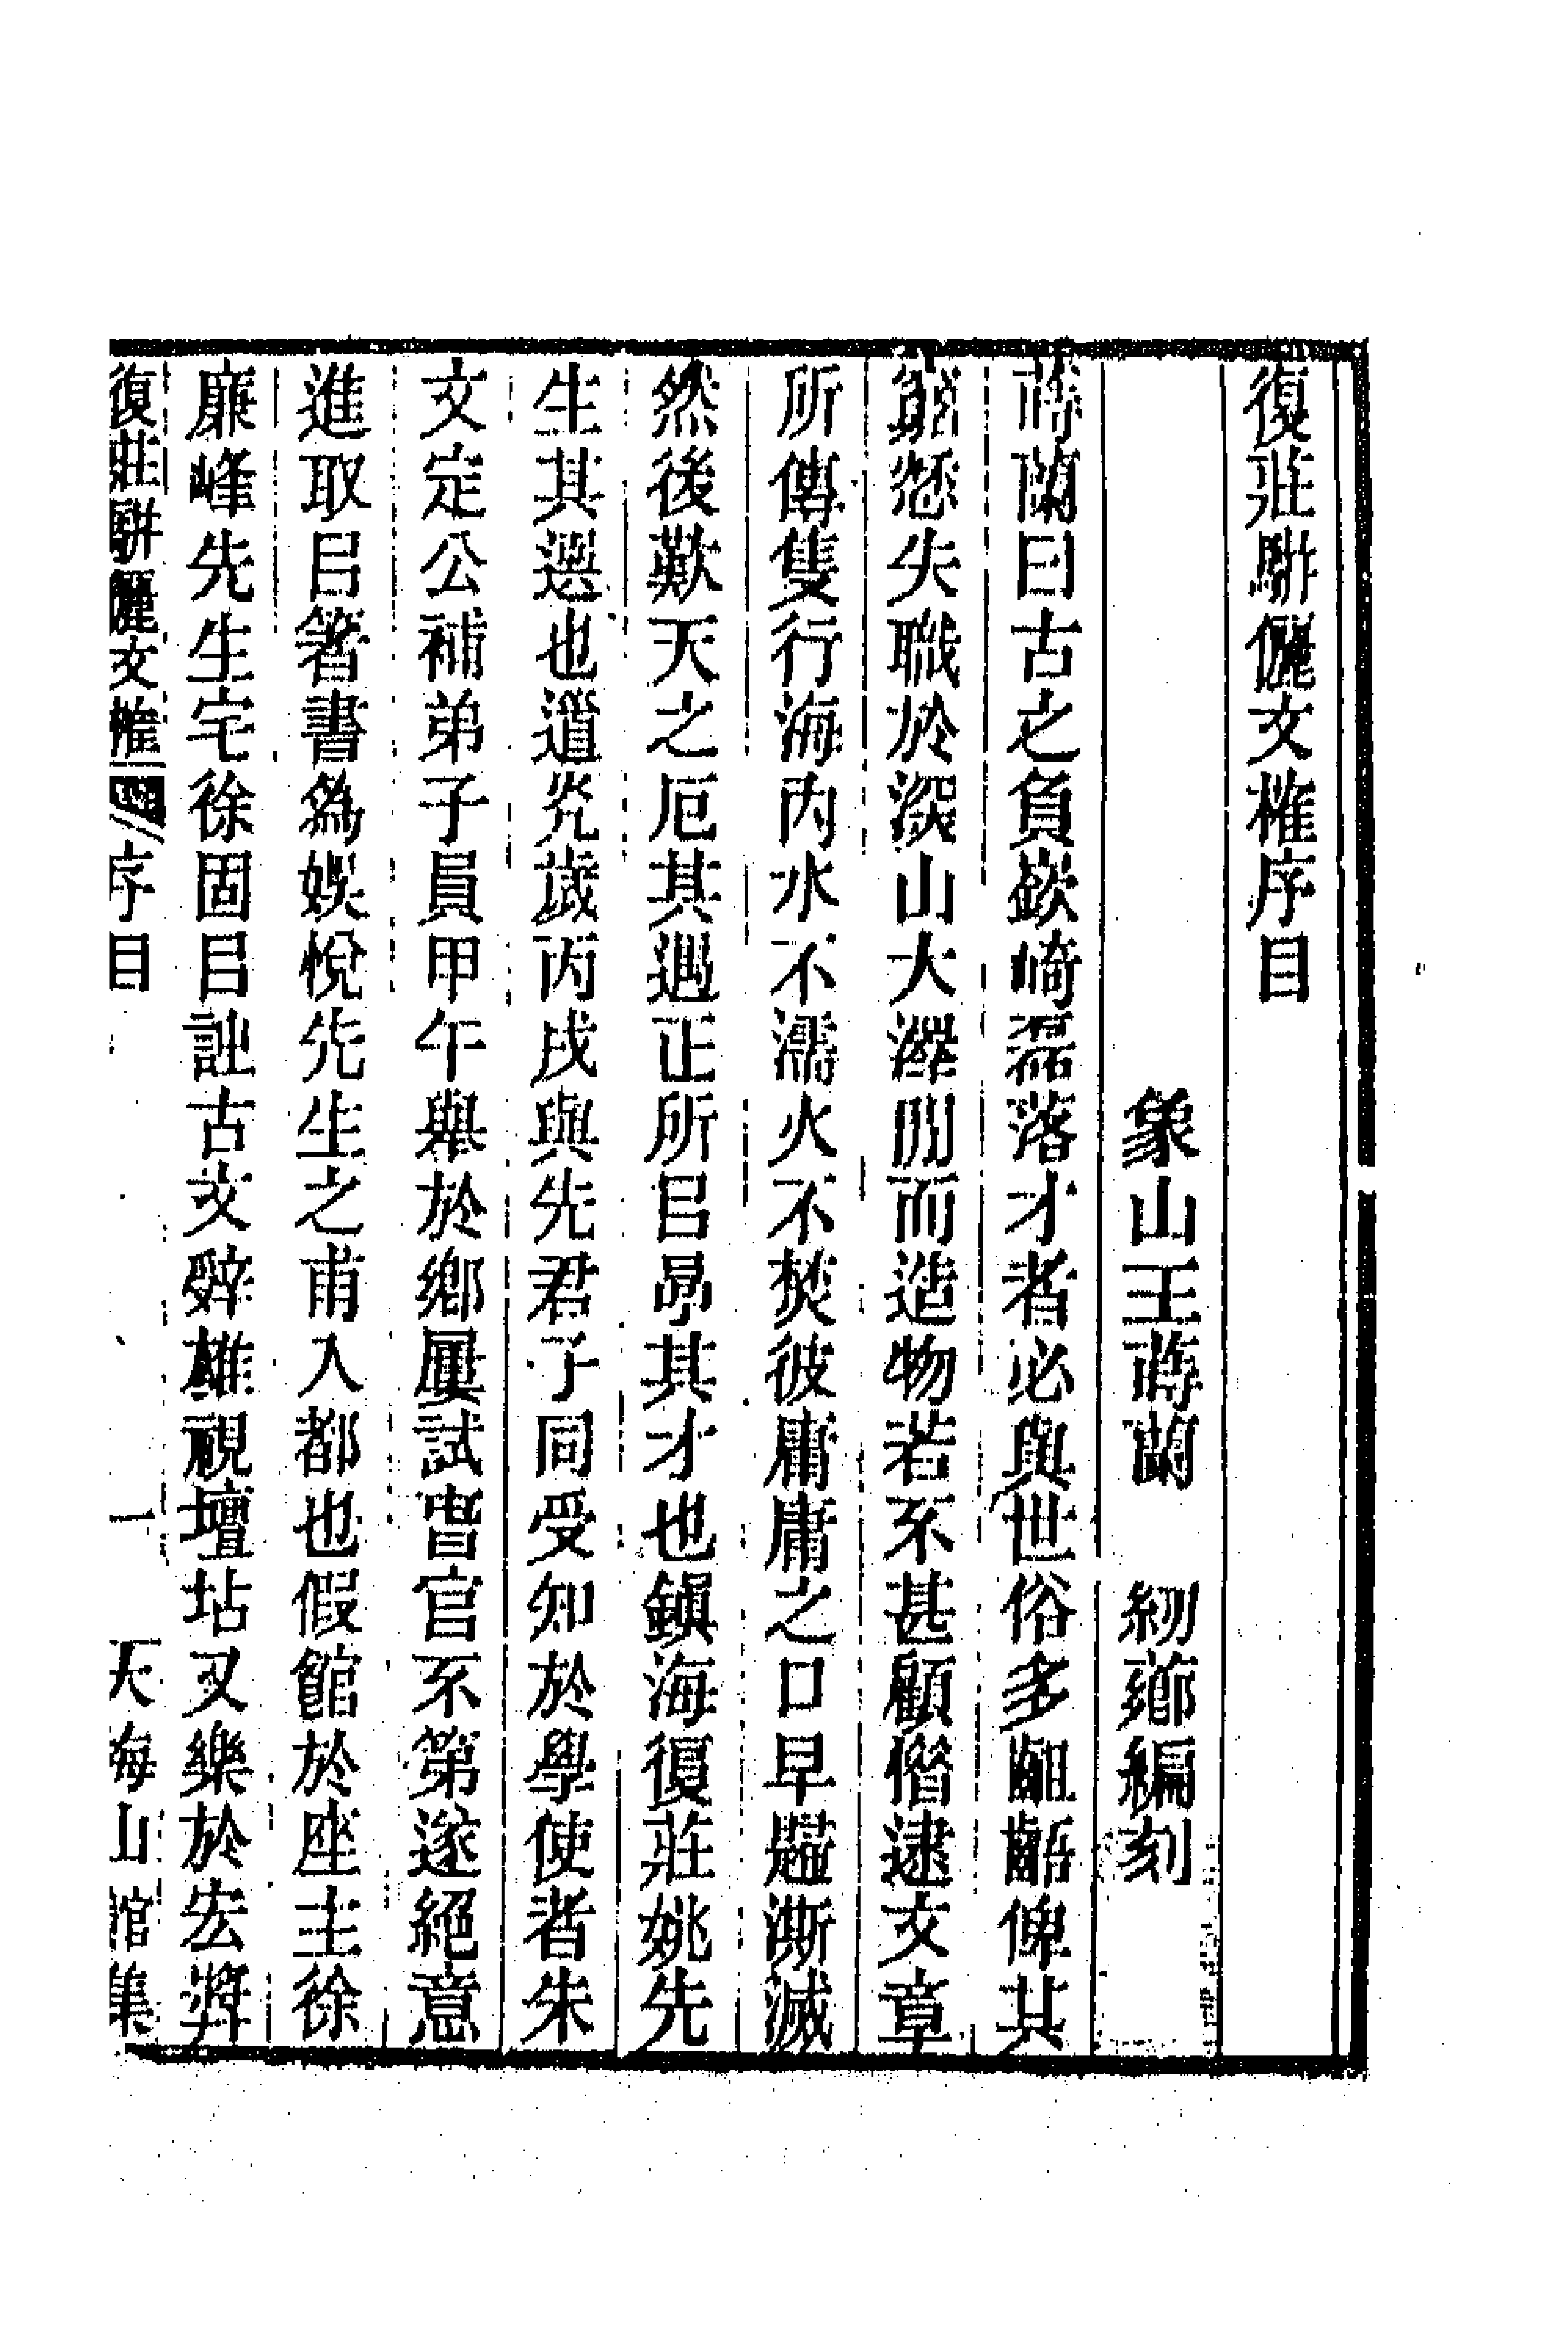 復莊駢儷文榷序目
象山王蒔蘭　紉薌編刻
蒔蘭曰古之負嶔崎磊落才者必與世俗多齟齬俾其
窮愁失職於深山大澤閒而造物若不甚顧惜逮文章
所傳隻行海內水不濡火不焚彼庸庸之口早躗澌滅
然後歎天之厄其遇正所㠯昂其才也鎭海復莊姚先
生其選也道光歲丙戌與先君子同受知於學使者朱
文定公補弟子員甲午舉於鄉屢試春官不第遂絕意
進取㠯箸書爲娛悅先生之甫入都也假館於座主徐
廉峰先生宅徐固㠯詩古文辭雄視壇坫又樂於宏奬
復莊駢儷文榷　序目　一　大某山館集